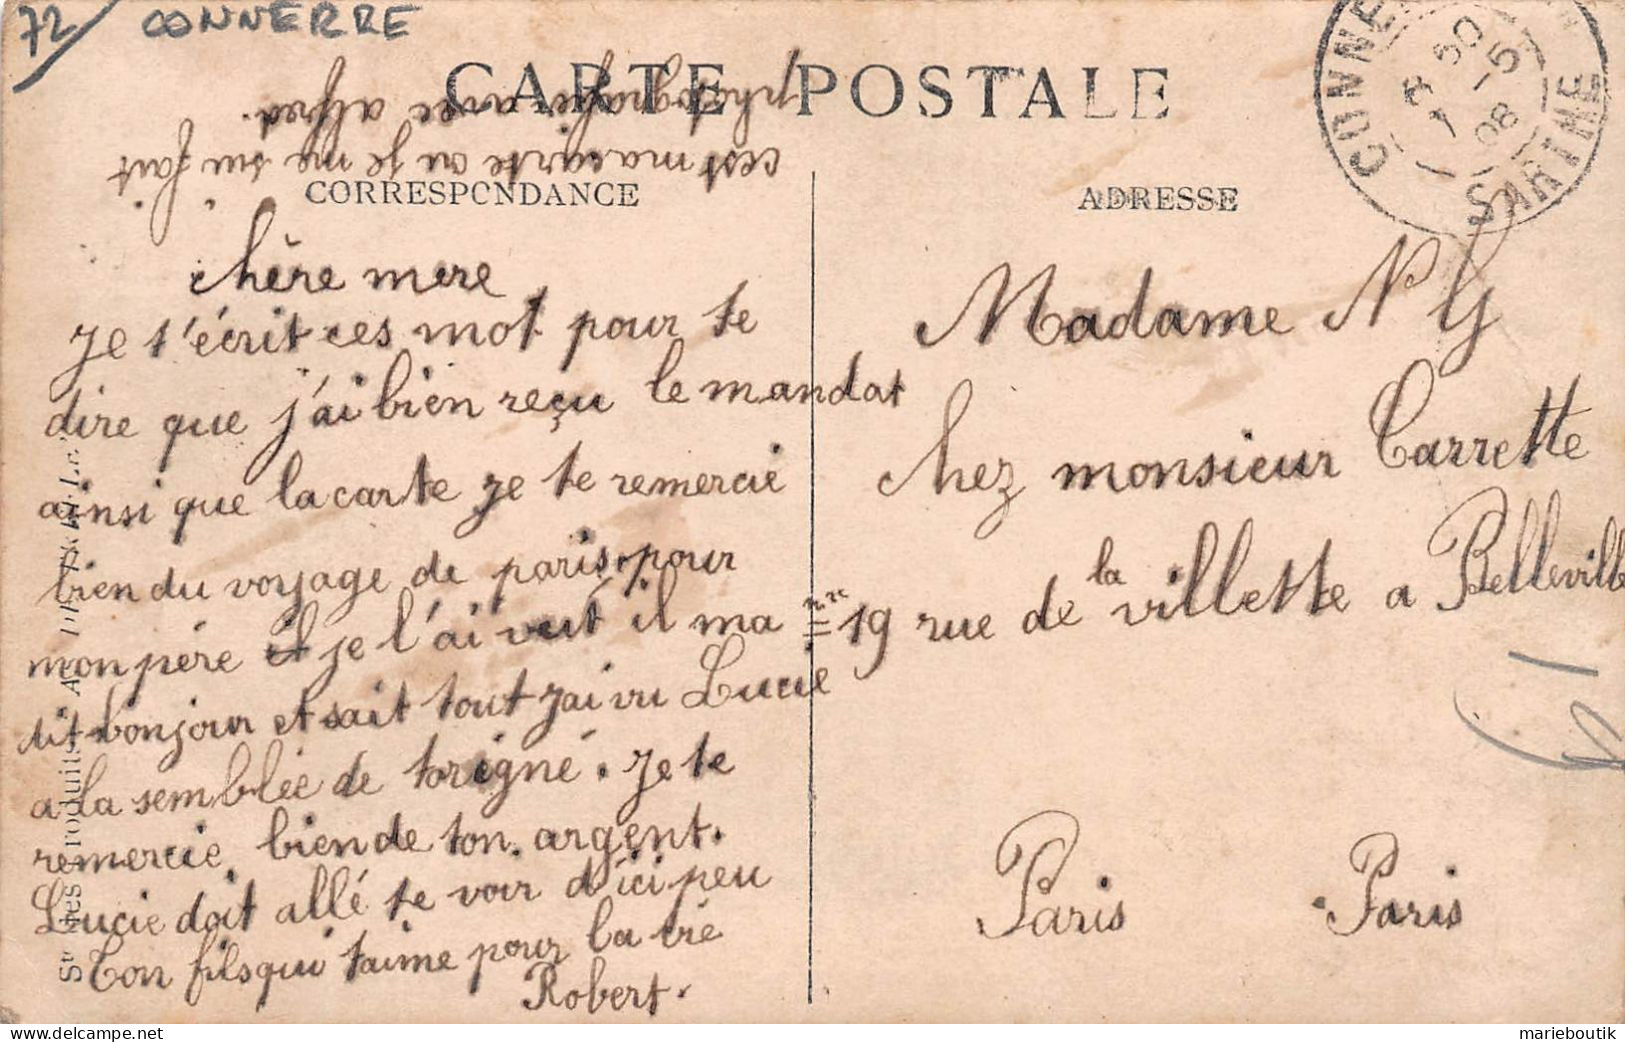 72 CONNERRE
CARTE POSTALE
c'est ma carte ou je me sui fait
photographier avec alfred.
CORRESPONDANCE
ADRESSE
CONNE
SARTHE
1 -5
08
chère mere
je t'écrit ces mot pour te
dire que j'ai bien reçu le mandat
ainsi que la carte je te remercie
bien du voyage de paris. pour
mon père et je l'ai vut il ma
dit bonjour et sait tout j'ai vu Lucie
a la semblée de torigné. je te
remercie bien de ton argent.
Lucie doit allé te voir d'ici peu
Ton fils qui t'aime pour la vie
Robert.
Madame N G
chez monsieur Carrette
19 rue de la villette a Belleville
Paris Paris
marieboutik